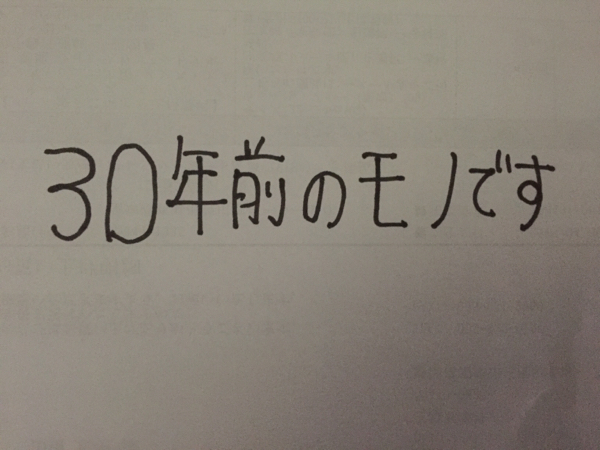 30年前のモノです